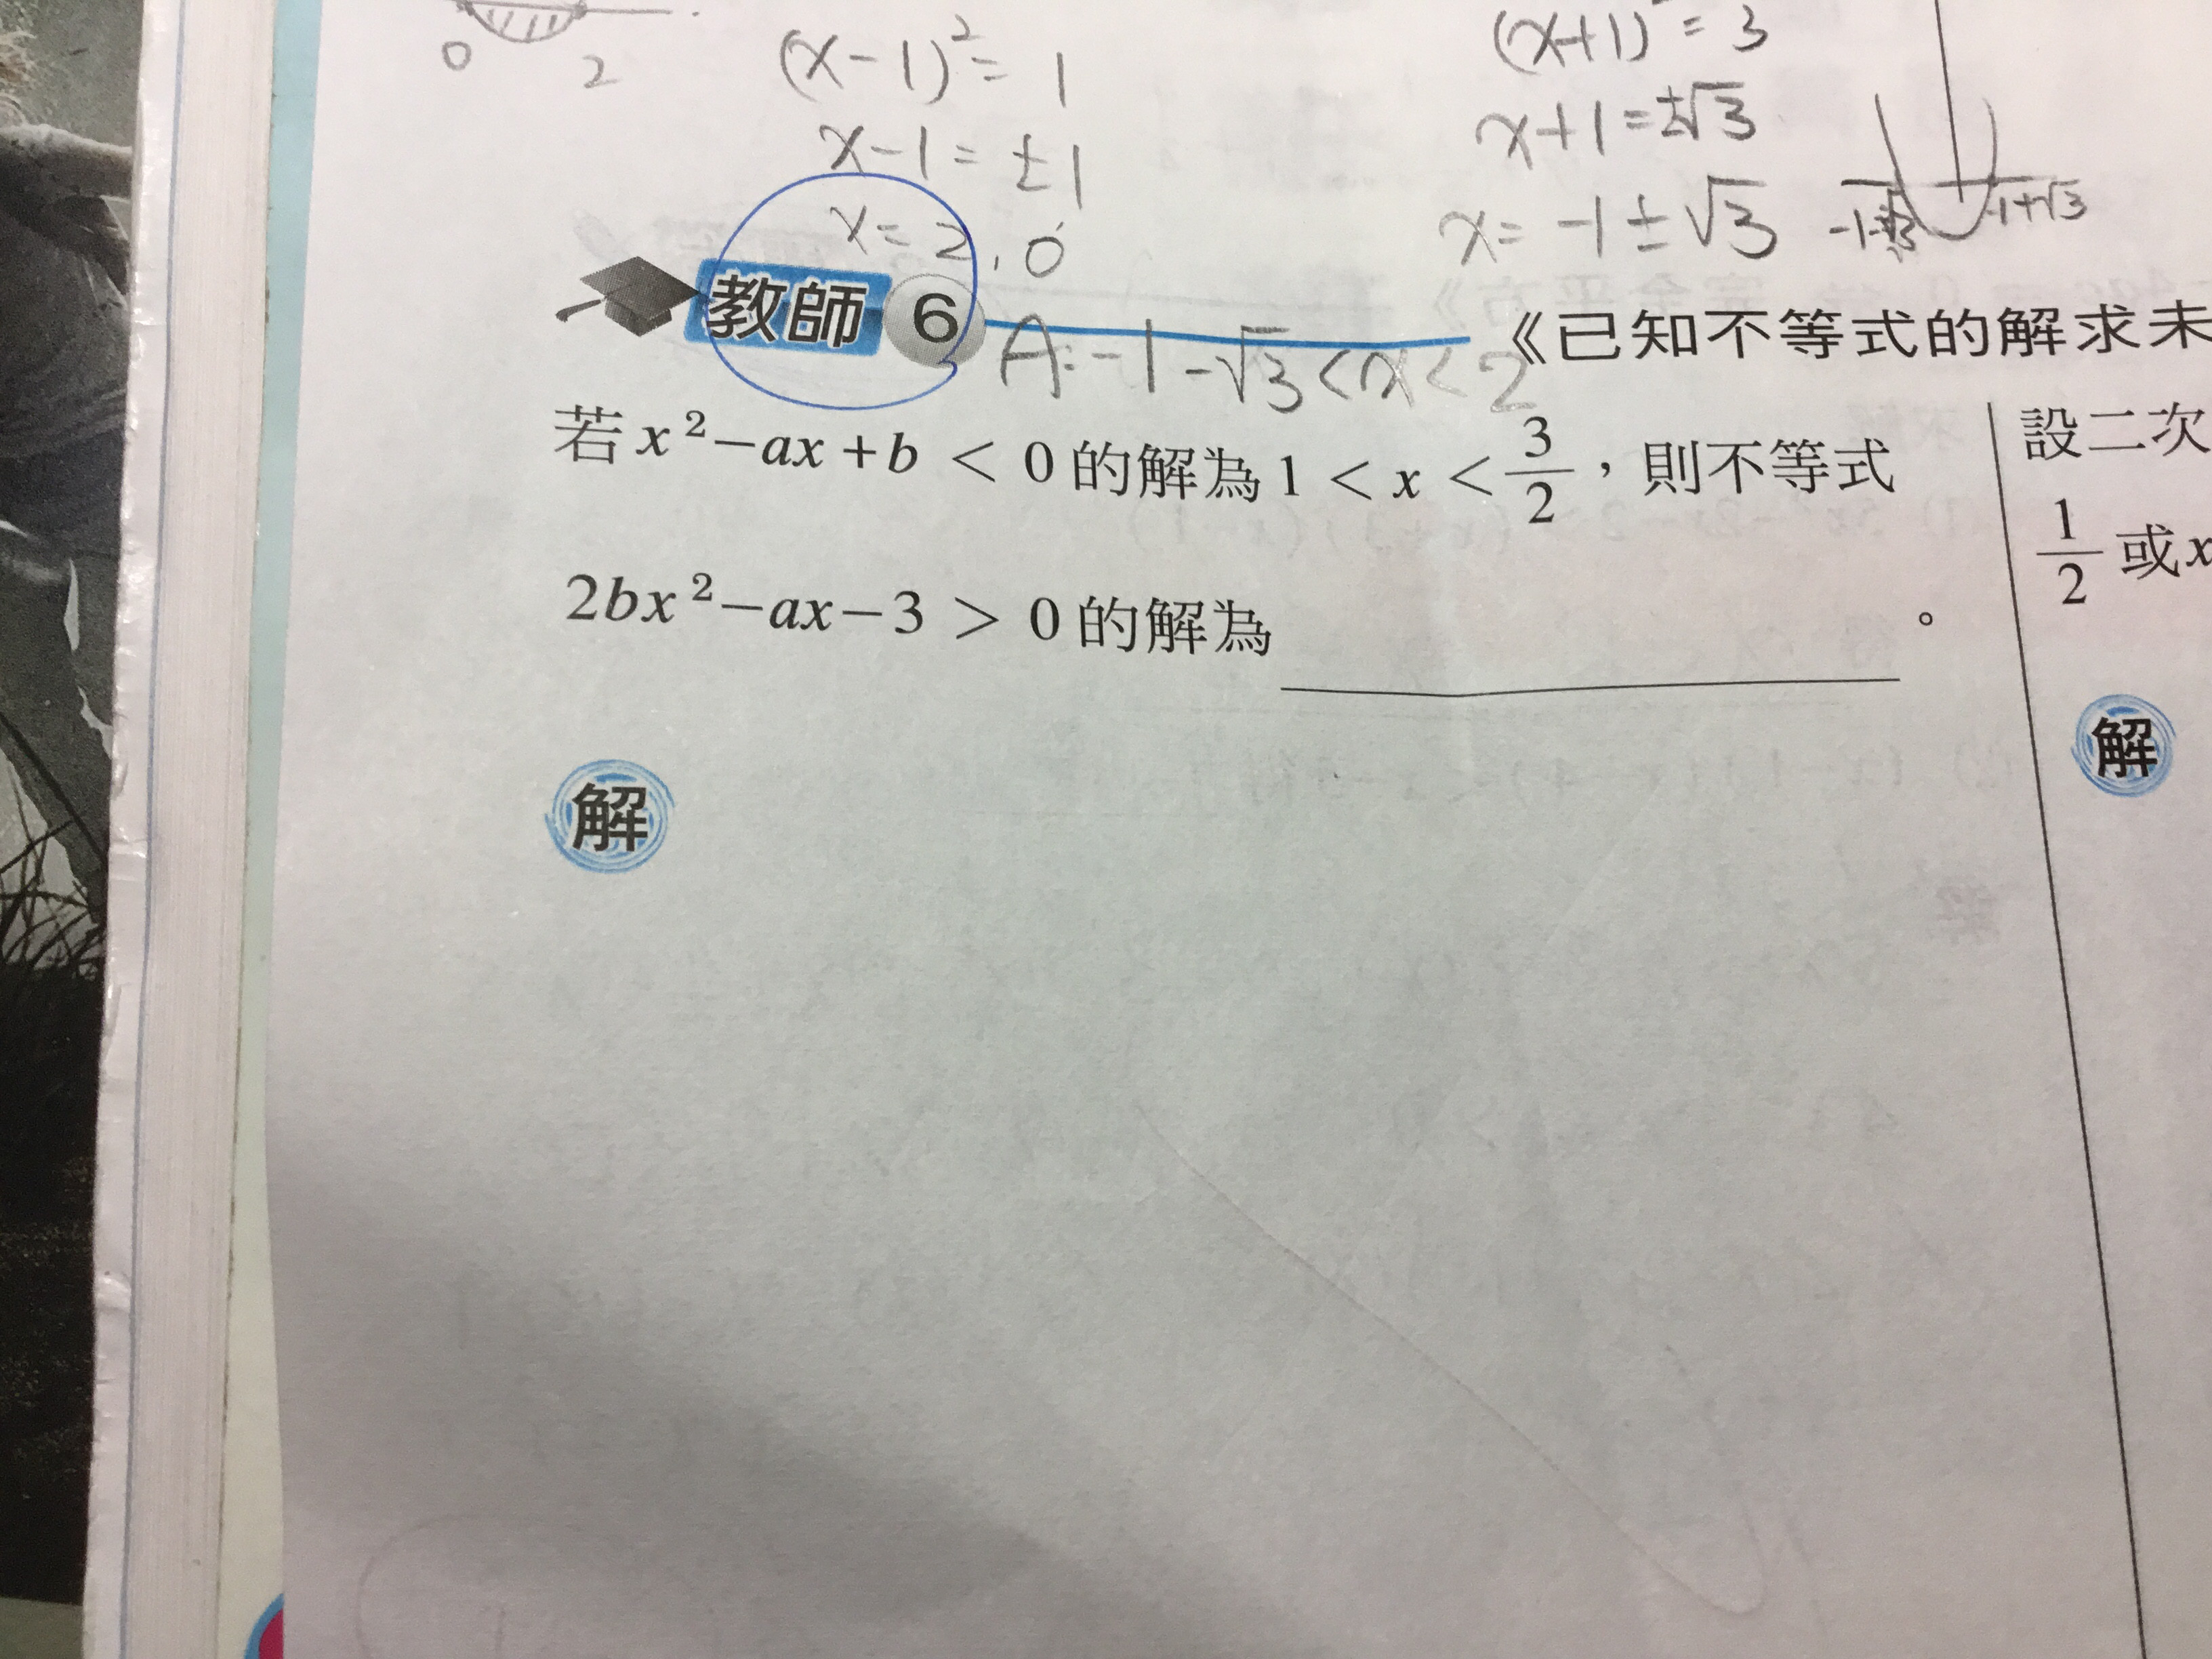 0 2
(x-1)² = 1
x-1 = ±1
x = 2, 0
(x+1)² = 3
x+1 = ±√3
x = -1 ± √3
-1-√3 -1+√3
教師 6
A: -1-√3 < x < 2
《已知不等式的解求未
若 x²-ax+b < 0 的解為 1 < x < 3/2，則不等式
2bx²-ax-3 > 0 的解為＿＿＿＿＿＿。
解
設二次
1/2 或 x
解